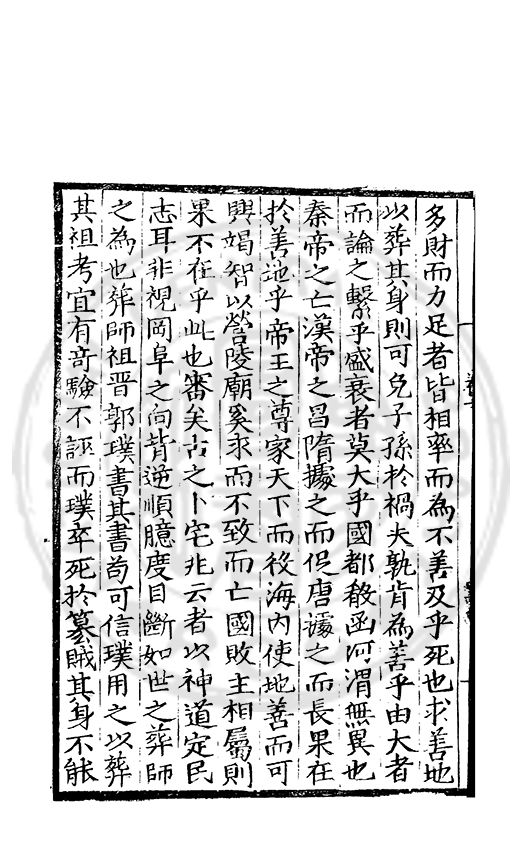 多財而力足者皆相率而為不善及乎死也求善地
以葬其身則可免子孫於禍夫孰肯為善乎由大者
而論之繫乎盛衰者莫大乎國都殽函河渭無異也
秦帝之亡漢帝之昌隋據之而促唐據之而長果在
於善地乎帝王之尊家天下而役海内使地善而可
興竭智以營陵廟奚求而不致而亡國敗主相屬則
果不在乎此也審矣古之卜宅兆云者以神道定民
志耳非視岡阜之向背逆順臆度目斷如世之葬師
之為也葬師祖晉郭璞書其書苟可信璞用之以葬
其祖考宜有竒驗不誣而璞卒死於簒賊其身不能